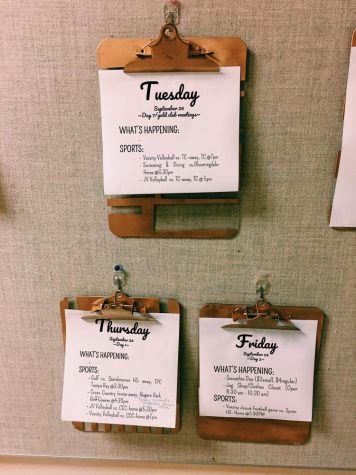 Tuesday
September 26
~Day 7/gold club meetings~
WHAT'S HAPPENING:
SPORTS:
- Varsity Volleyball vs. TC -away, TC @7pm
- Swimming & Diving vs.Bloomingdale-
Home @5:30pm
- JV Volleyball vs. TC-away, TC @ 5pm
Thursday
September 28
~Day 1~
WHAT'S HAPPENING:
SPORTS:
- Golf vs. HS- away, TPC
Tampa Bay @3:30pm
- Cross Country Invite-away, Rogers Park
Golf Course @4:30pm
- JV Volleyball vs. CCC-home @5:30pm
- Varsity Volleyball vs. CCC-home @7pm
Friday
September 29
~Day 2~
WHAT'S HAPPENING:
- Smoothie Day ($3small, $4regular)
- Jag Shop/Clothes Closet (Open
8:30 am - 10:30 am)
SPORTS:
- Varsity Jesuit Football game vs.
HS- Home @7:30PM